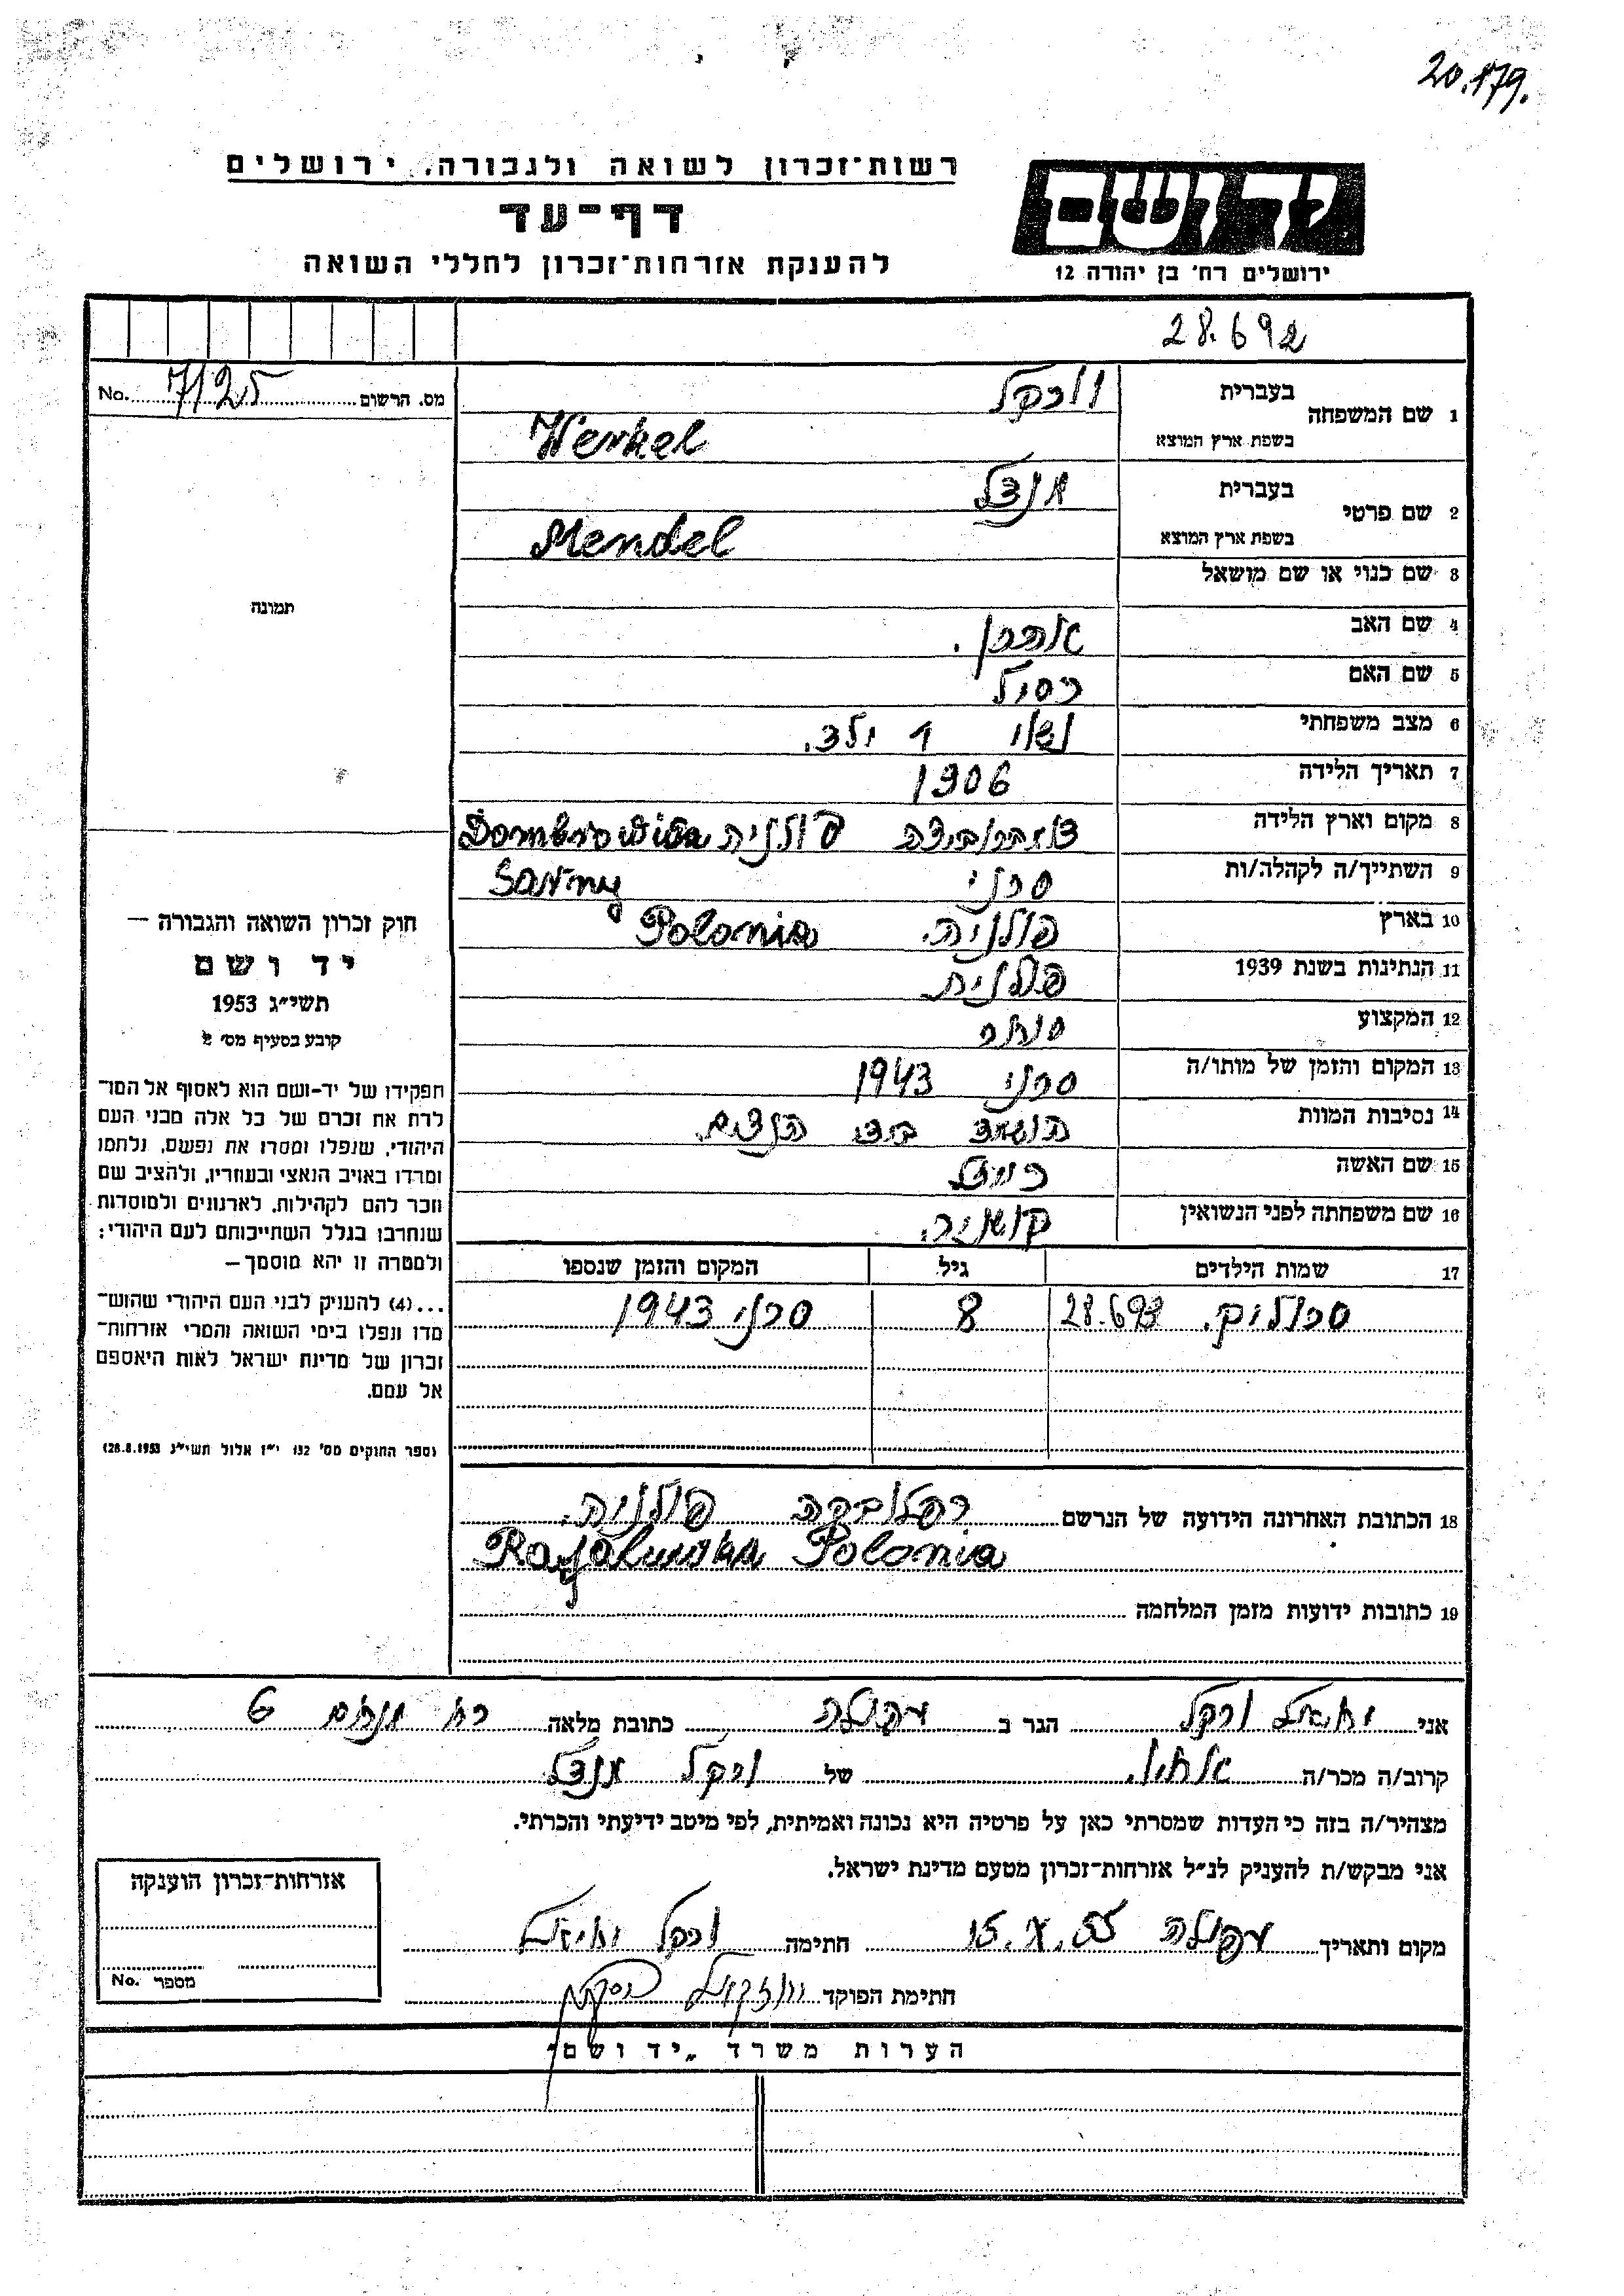 20.179.
רשות־זכרון לשואה ולגבורה, ירושלים
יד ושם
דף־עד
להענקת אזרחות־זכרון לחללי השואה
ירושלים רח' בן יהודה 12
28.692
מס. הרשום 7125 No.
1 שם המשפחה
בעברית וורקל
בשפת ארץ המוצא Werkel
2 שם פרטי
בעברית מנדל
בשפת ארץ המוצא Mendel
תמונה
3 שם כנוי או שם מושאל
4 שם האב אהרן.
5 שם האם
6 מצב משפחתי נשוי 1 ילד.
7 תאריך הלידה 1906
8 מקום וארץ הלידה דומברוביצה פולניה Dombrowica
9 השתייך/ה לקהלה/ות סרני Sarny
10 בארץ פולניה. Polonia
11 הנתינות בשנת 1939 פולנית
12 המקצוע סוחר
13 המקום והזמן של מותו/ה סרני 1943
14 נסיבות המוות הושמד בידי הנאצים.
15 שם האשה
16 שם משפחתה לפני הנשואין קושניר.
17 שמות הילדים גיל המקום והזמן שנספו
28.693 8 סרני 1943
חוק זכרון השואה והגבורה —
יד ושם
תשי״ג 1953
קובע בסעיף מס' 2
תפקידו של יד-ושם הוא לאסוף אל המו־
לדת את זכרם של כל אלה מבני העם
היהודי, שנפלו ומסרו את נפשם, נלחמו
ומרדו באויב הנאצי ובעוזריו, ולהציב שם
וזכר להם לקהילות, לארגונים ולמוסדות
שנחרבו בגלל השתייכותם לעם היהודי:
ולמטרה זו יהא מוסמך —
...(4) להעניק לבני העם היהודי שהוש־
מדו ונפלו בימי השואה והמרי אזרחות־
זכרון של מדינת ישראל לאות היאספם
אל עמם.
(ספר החוקים מס' 132 י״ז אלול תשי״ג 28.8.1953)
18 הכתובת האחרונה הידועה של הנרשם רפלובקה פולניה.
Rafalowka Polonia
19 כתובות ידועות מזמן המלחמה
אני ורקל הגר ב עפולה כתובת מלאה רח 6
קרוב/ה מכר/ה אחיו. של ורקל מנדל
מצהיר/ה בזה כי העדות שמסרתי כאן על פרטיה היא נכונה ואמיתית, לפי מיטב ידיעתי והכרתי.
אני מבקש/ת להעניק לנ״ל אזרחות־זכרון מטעם מדינת ישראל.
מקום ותאריך עפולה 15.X.55 חתימה ורקל
חתימת הפוקד
אזרחות־זכרון הוענקה
מספר No.
הערות משרד „יד ושם"